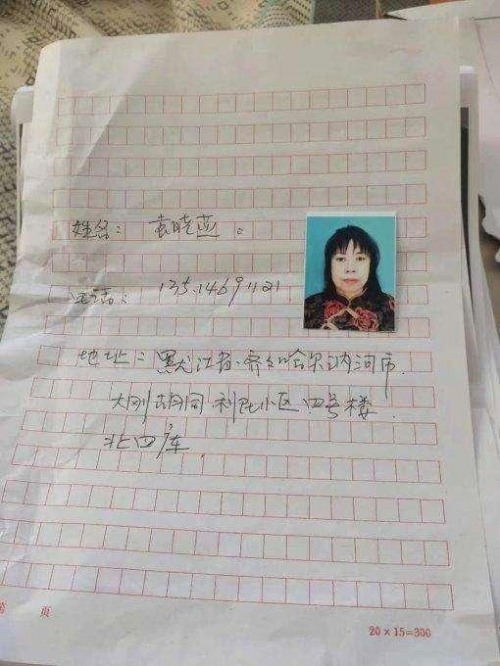 姓名：袁晓燕。
电话：135.1469.1121
地址：黑龙江省.齐齐哈尔讷河市.
大刚胡同.利民小区四号楼.
北四库.
第 页
20×15=300